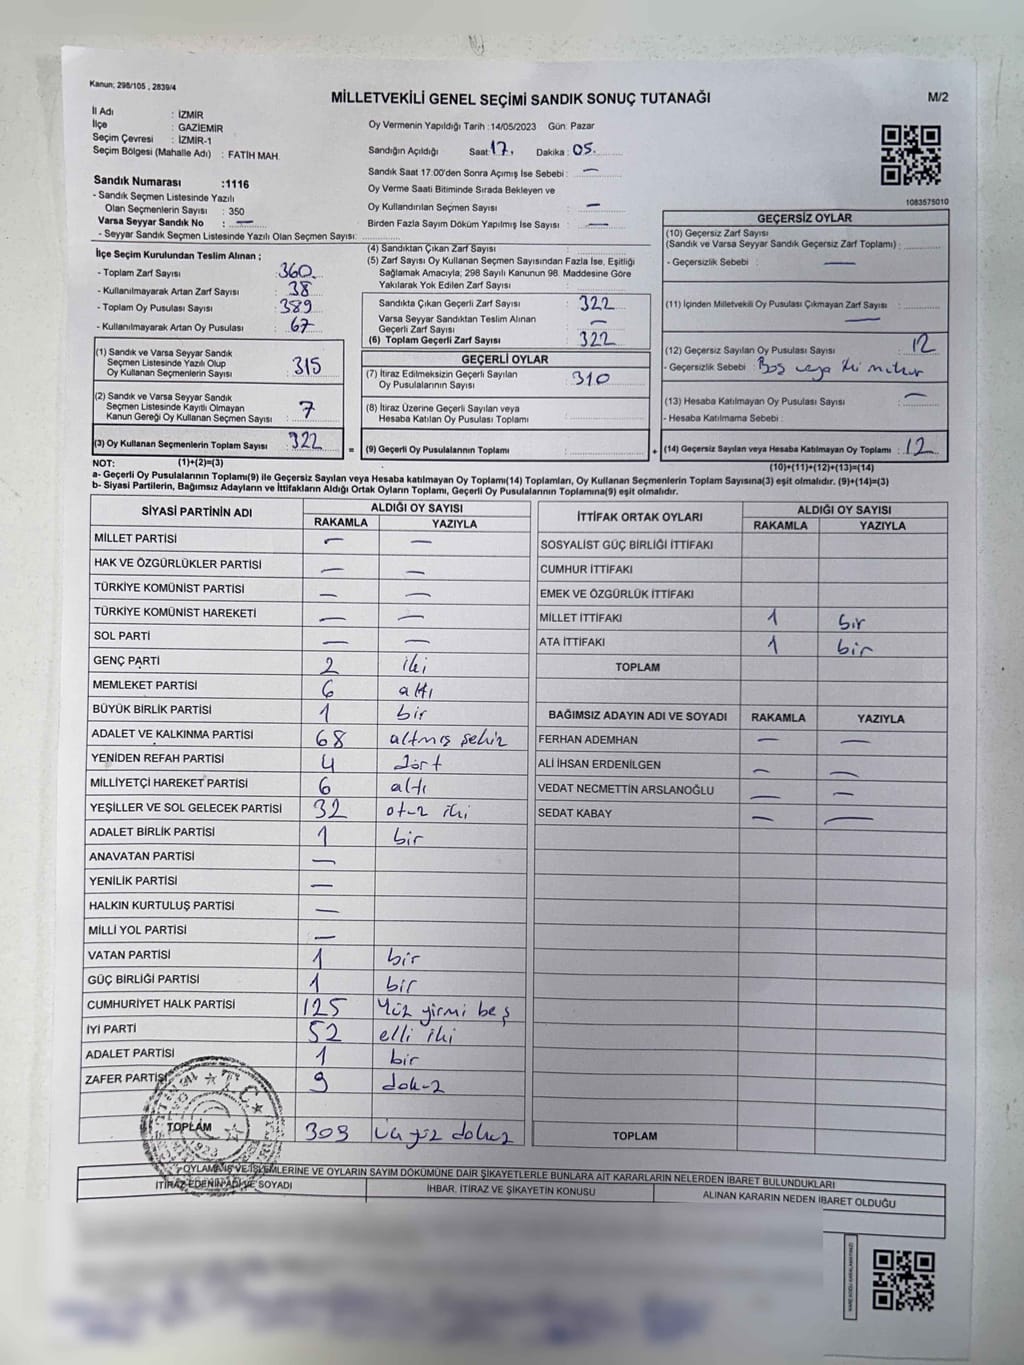 Kanun; 298/105 , 2839/4
MİLLETVEKİLİ GENEL SEÇİMİ SANDIK SONUÇ TUTANAĞI
M/2
İl Adı : İZMİR
İlçe : GAZİEMİR
Seçim Çevresi : İZMİR-1
Seçim Bölgesi (Mahalle Adı) : FATİH MAH.
Oy Vermenin Yapıldığı Tarih :14/05/2023 Gün: Pazar
Sandığın Açıldığı Saat 17. Dakika : 05.
Sandık Saat 17:00'den Sonra Açımış İse Sebebi : —
Oy Verme Saati Bitiminde Sırada Bekleyen ve
Oy Kullandırılan Seçmen Sayısı : —
Birden Fazla Sayım Döküm Yapılmış İse Sayısı : —
1083575010
Sandık Numarası :1116
- Sandık Seçmen Listesinde Yazılı
Olan Seçmenlerin Sayısı : 350
Varsa Seyyar Sandık No : —
- Seyyar Sandık Seçmen Listesinde Yazılı Olan Seçmen Sayısı:
İlçe Seçim Kurulundan Teslim Alınan ;
- Toplam Zarf Sayısı : 360
- Kullanılmayarak Artan Zarf Sayısı : 38
- Toplam Oy Pusulası Sayısı : 389
- Kullanılmayarak Artan Oy Pusulası : 67
(1) Sandık ve Varsa Seyyar Sandık
Seçmen Listesinde Yazılı Olup
Oy Kullanan Seçmenlerin Sayısı : 315
(2) Sandık ve Varsa Seyyar Sandık
Seçmen Listesinde Kayıtlı Olmayan
Kanun Gereği Oy Kullanan Seçmen Sayısı : 7
(3) Oy Kullanan Seçmenlerin Toplam Sayısı : 322
(1)+(2)=(3)
(4) Sandıktan Çıkan Zarf Sayısı :
(5) Zarf Sayısı Oy Kullanan Seçmen Sayısından Fazla İse, Eşitliği
Sağlamak Amacıyla; 298 Sayılı Kanunun 98. Maddesine Göre
Yakılarak Yok Edilen Zarf Sayısı :
Sandıkta Çıkan Geçerli Zarf Sayısı : 322
Varsa Seyyar Sandıktan Teslim Alınan
Geçerli Zarf Sayısı : —
(6) Toplam Geçerli Zarf Sayısı : 322
GEÇERLİ OYLAR
(7) İtiraz Edilmeksizin Geçerli Sayılan
Oy Pusulalarının Sayısı : 310
(8) İtiraz Üzerine Geçerli Sayılan veya
Hesaba Katılan Oy Pusulası Toplamı :
= (9) Geçerli Oy Pusulalarının Toplamı : +
GEÇERSİZ OYLAR
(10) Geçersiz Zarf Sayısı
(Sandık ve Varsa Seyyar Sandık Geçersiz Zarf Toplamı) :
- Geçersizlik Sebebi : —
(11) İçinden Milletvekili Oy Pusulası Çıkmayan Zarf Sayısı : —
(12) Geçersiz Sayılan Oy Pusulası Sayısı : 12
- Geçersizlik Sebebi : Boş veya iki mühür
(13) Hesaba Katılmayan Oy Pusulası Sayısı : —
- Hesaba Katılmama Sebebi :
(14) Geçersiz Sayılan veya Hesaba Katılmayan Oy Toplamı : 12
(10)+(11)+(12)+(13)=(14)
NOT:
a- Geçerli Oy Pusulalarının Toplamı(9) ile Geçersiz Sayılan veya Hesaba katılmayan Oy Toplamı(14) Toplamları, Oy Kullanan Seçmenlerin Toplam Sayısına(3) eşit olmalıdır. (9)+(14)=(3)
b- Siyasi Partilerin, Bağımsız Adayların ve İttifakların Aldığı Ortak Oyların Toplamı, Geçerli Oy Pusulalarının Toplamına(9) eşit olmalıdır.
SİYASİ PARTİNİN ADI ALDIĞI OY SAYISI
RAKAMLA YAZIYLA
MİLLET PARTİSİ — —
HAK VE ÖZGÜRLÜKLER PARTİSİ — —
TÜRKİYE KOMÜNİST PARTİSİ — —
TÜRKİYE KOMÜNİST HAREKETİ — —
SOL PARTİ — —
GENÇ PARTİ 2 iki
MEMLEKET PARTİSİ 6 altı
BÜYÜK BİRLİK PARTİSİ 1 bir
ADALET VE KALKINMA PARTİSİ 68 altmış sekiz
YENİDEN REFAH PARTİSİ 4 dört
MİLLİYETÇİ HAREKET PARTİSİ 6 altı
YEŞİLLER VE SOL GELECEK PARTİSİ 32 otuz iki
ADALET BİRLİK PARTİSİ 1 bir
ANAVATAN PARTİSİ —
YENİLİK PARTİSİ —
HALKIN KURTULUŞ PARTİSİ —
MİLLİ YOL PARTİSİ —
VATAN PARTİSİ 1 bir
GÜÇ BİRLİĞİ PARTİSİ 1 bir
CUMHURİYET HALK PARTİSİ 125 Yüz yirmi beş
İYİ PARTİ 52 elli iki
ADALET PARTİSİ 1 bir
ZAFER PARTİSİ 9 dokuz
TOPLAM 309 üç yüz dokuz
İTTİFAK ORTAK OYLARI ALDIĞI OY SAYISI
RAKAMLA YAZIYLA
SOSYALİST GÜÇ BİRLİĞİ İTTİFAKI
CUMHUR İTTİFAKI
EMEK VE ÖZGÜRLÜK İTTİFAKI
MİLLET İTTİFAKI 1 bir
ATA İTTİFAKI 1 bir
TOPLAM
BAĞIMSIZ ADAYIN ADI VE SOYADI RAKAMLA YAZIYLA
FERHAN ADEMHAN — —
ALİ İHSAN ERDENİLGEN — —
VEDAT NECMETTİN ARSLANOĞLU — —
SEDAT KABAY — —
TOPLAM
T.C.
1923
OYLAMA İŞ VE İŞLEMLERİNE VE OYLARIN SAYIM DÖKÜMÜNE DAİR ŞİKAYETLERLE BUNLARA AİT KARARLARIN NELERDEN İBARET BULUNDUKLARI
İTİRAZ EDENİN ADI VE SOYADI İHBAR, İTİRAZ VE ŞİKAYETİN KONUSU ALINAN KARARIN NEDEN İBARET OLDUĞU